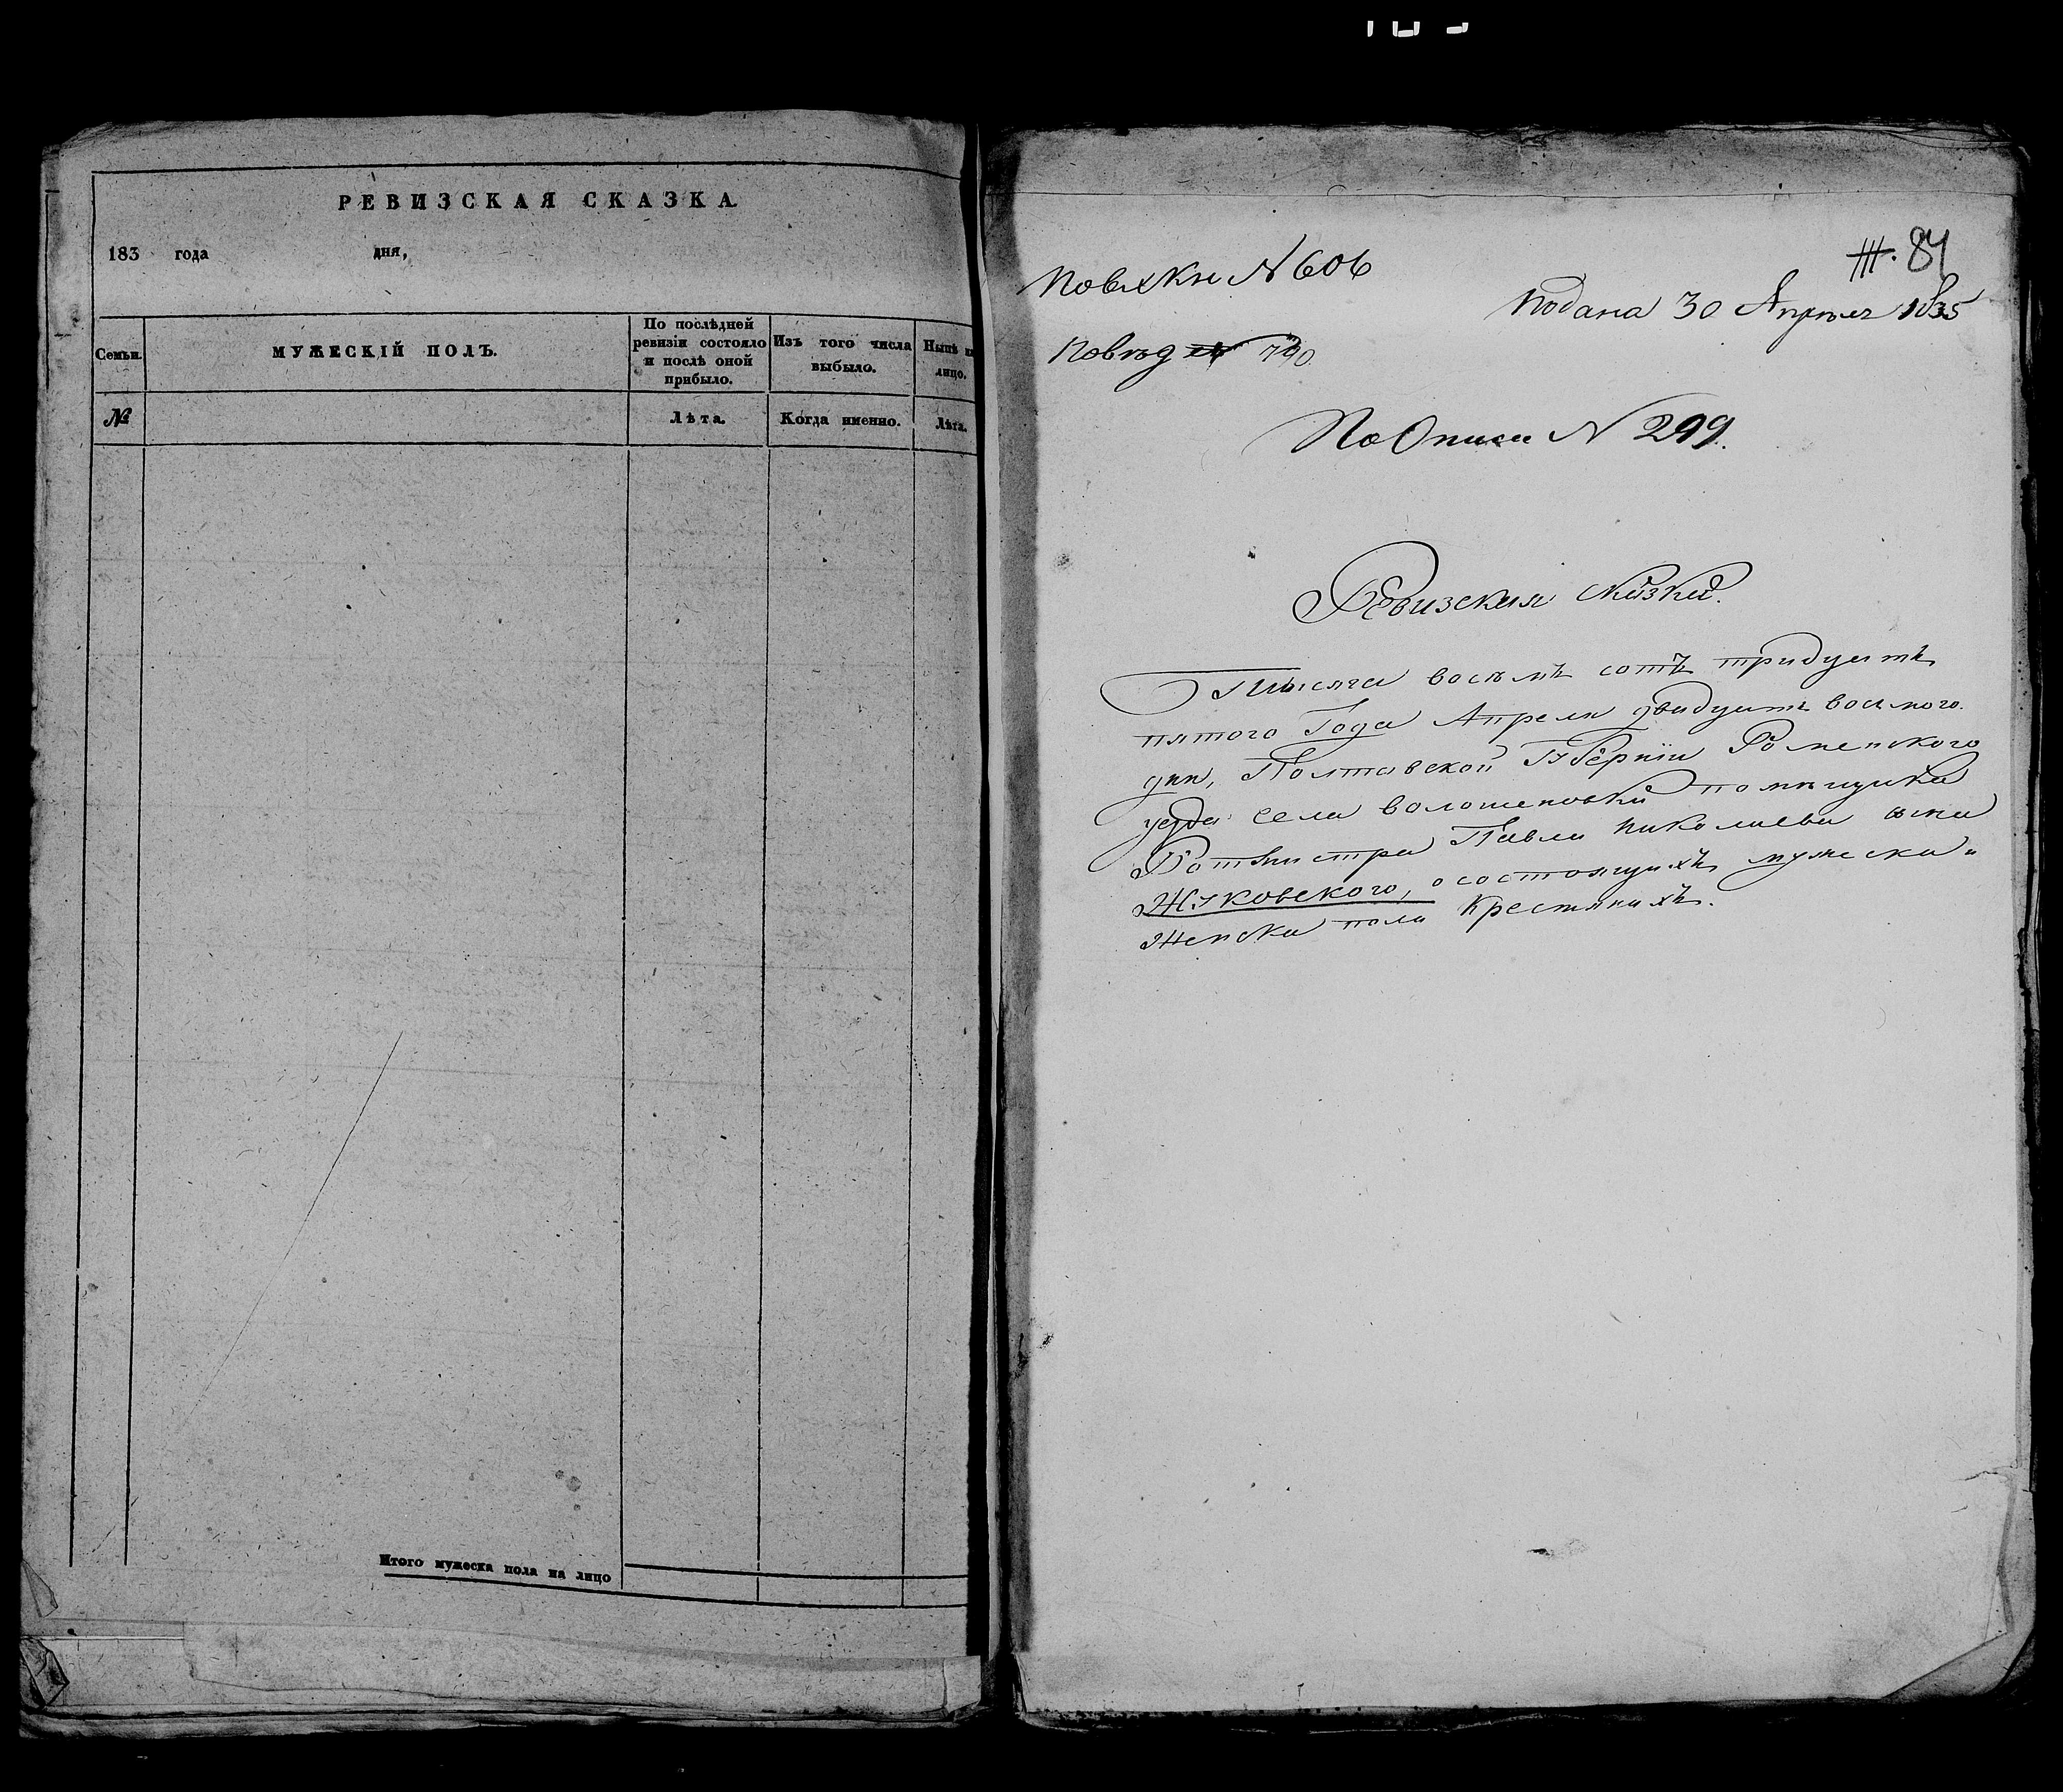 РЕВИЗСКАЯ СКАЗКА.
183 года дня,
Семьи.
МУЖЕСКІЙ ПОЛЪ.
По послѣдней
ревизіи состояло
и послѣ оной
прибыло.
Изъ того числа
выбыло.
Нынѣ на
лицо.
№
Лѣта.
Когда именно.
Лѣта.
Итого мужеска пола на лицо
84
N 606
Подана 30 Апреля 1835
790
По Описи N 299.
Ревизская сказка.
Тысяча восемь сотъ тридцать
пятого Года Апреля двадцать восьмого
дня, Полтавской Губерніи Роменского
уезда села волошеновки помещика
Ротмистра Павла николаева сына
Жуковского, о состоящихъ мужеска и
Женска пола Крестянахъ.